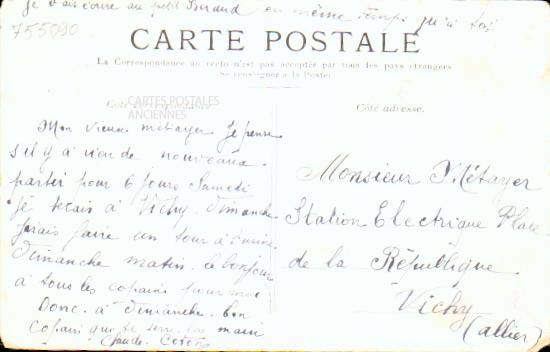 Je vais écrire au petit Biraud en même temps qu'à toi
755090
CARTE POSTALE
La Correspondance au recto n'est pas acceptée par tous les pays étrangers
Se renseigner à la Poste
Côté
CARTES POSTALES
ANCIENNES
Côté adresse.
Mon vieux métayer Je pense
s'il y a rien de nouveaux
partir pour 6 jours Samedi
je serais à Vichy. dimanche
j'irais faire un tour à l'usine
dimanche matin. le bonjour
à tous les copains pour moi
Donc. à dimanche. bon
Copain que te serre la main
Claude
Monsieur Métayer
Station Electrique Place
de la République
Vichy
(allier)